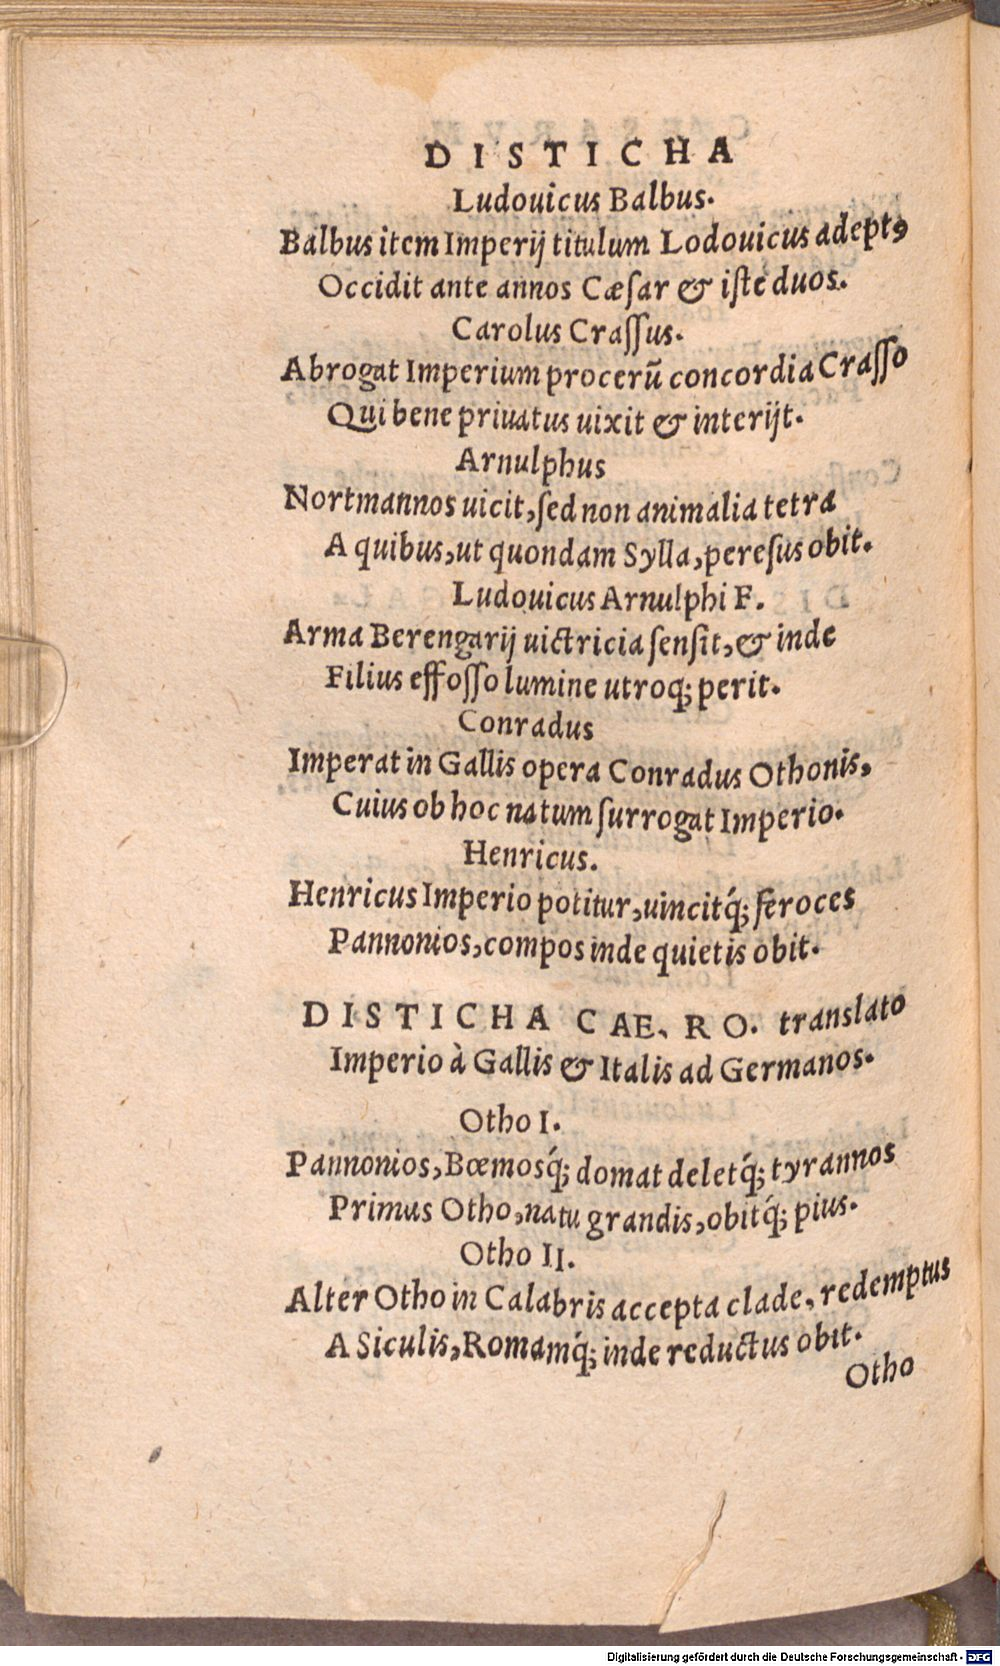 DISTICHA
Ludouicus Balbus.
Balbus item Imperij titulum Lodouicus adeptꝰ
Occidit ante annos Cæſar & iſte duos.
Carolus Craſſus.
Abrogat Imperium procerū concordia Craſſo
Qui bene priuatus uixit & interijt.
Arnulphus
Nortmannos uicit, ſed non animalia tetra
A quibus, ut quondam Sylla, pereſus obit.
Ludouicus Arnulphi F.
Arma Berengarij uictricia ſenſit, & inde
Filius effoſſo lumine utroq; perit.
Conradus
Imperat in Gallis opera Conradus Othonis,
Cuius ob hoc natum ſurrogat Imperio.
Henricus.
Henricus Imperio potitur, uincitq́; feroces
Pannonios, compos inde quietis obit.
DISTICHA CAE. RO. translato
Imperio à Gallis & Italis ad Germanos.
Otho I.
Pannonios, Bœmosq́; domat deletq́; tyrannos
Primus Otho, natu grandis, obitq́; pius.
Otho II.
Alter Otho in Calabris accepta clade, redemptus
A Siculis, Romamq́; inde reductus obit.
Otho
Digitalisierung gefördert durch die Deutsche Forschungsgemeinschaft - DFG